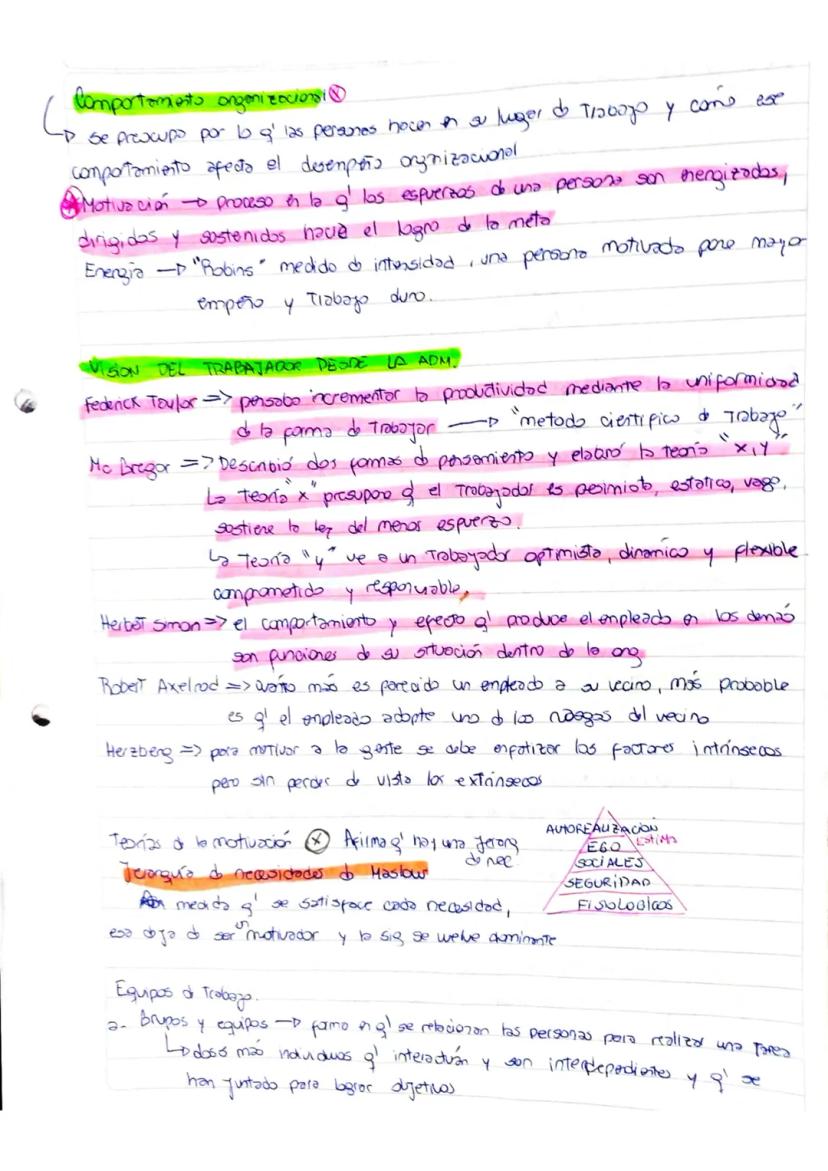 Comportamiento organizacional
se preocupa por lo q' las personas hacen en su lugar de Trabajo y como ese
comportamiento afecta el desempeño orgnizacional
Motivación → proceso en la q' los esfuerzos de una persona son energizados,
dirigidos y sostenidos hacia el logro de la meta
Energia → "Robins" medida de intensidad, una persona motivada pone mayor
empeño y Trabajo duro.
VISION DEL TRABAJADOR DESDE LA ADM.
Federick Taylor => pensaba incrementar la productividad mediante la uniformidad
de la forma de Trabajar → "metodo cientifico de Trabajo"
Mc Gregor => Describió dos formas de pensamiento y elaboró la teoría "x,y"
La Teoría "x" presupone q' el Trabajador es pesimista, estatico, vago,
sostiene la ley del menos esfuerzo.
La Teoría "y" ve a un Trabajador optimista, dinamico y flexible
comprometido y responsable.
Herbet Simon => el comportamiento y efecto q' produce el empleado en los demás
son funciones de su situación dentro de la org
Robert Axelrod => cuanto más es parecido un empleado a su vecino, más probable
es q' el empleado adopte uno d los rasgos del vecino
Herzberg => para motivar a la gente se debe enfatizar los factores intrínsecos
pero sin perder de vista los extrínsecos
Teorías de la motivación Afirma q' hay una Jerarq
de nec
Jerarquía de necesidades de Maslow
medida q' se satisface cada necesidad,
esa deja de ser un motivador y la sig se vuelve dominante
AUTOREALIZACION
EGO Estima
SOCIALES
SEGURIDAD
FISIOLOGICOS
Equipos d Trabajo.
a- Grupos y equipos → forma en q' se relacionan las personas para realizar una Tarea
dos o más individuos q' interactuán y son interdependientes y q' se
han juntado para lograr objetivos